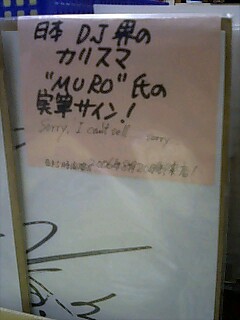 日本 DJ 界の
カリスマ
"MURO" 氏の
実筆サイン!
Sorry, I can't sell sorry
2006年8月